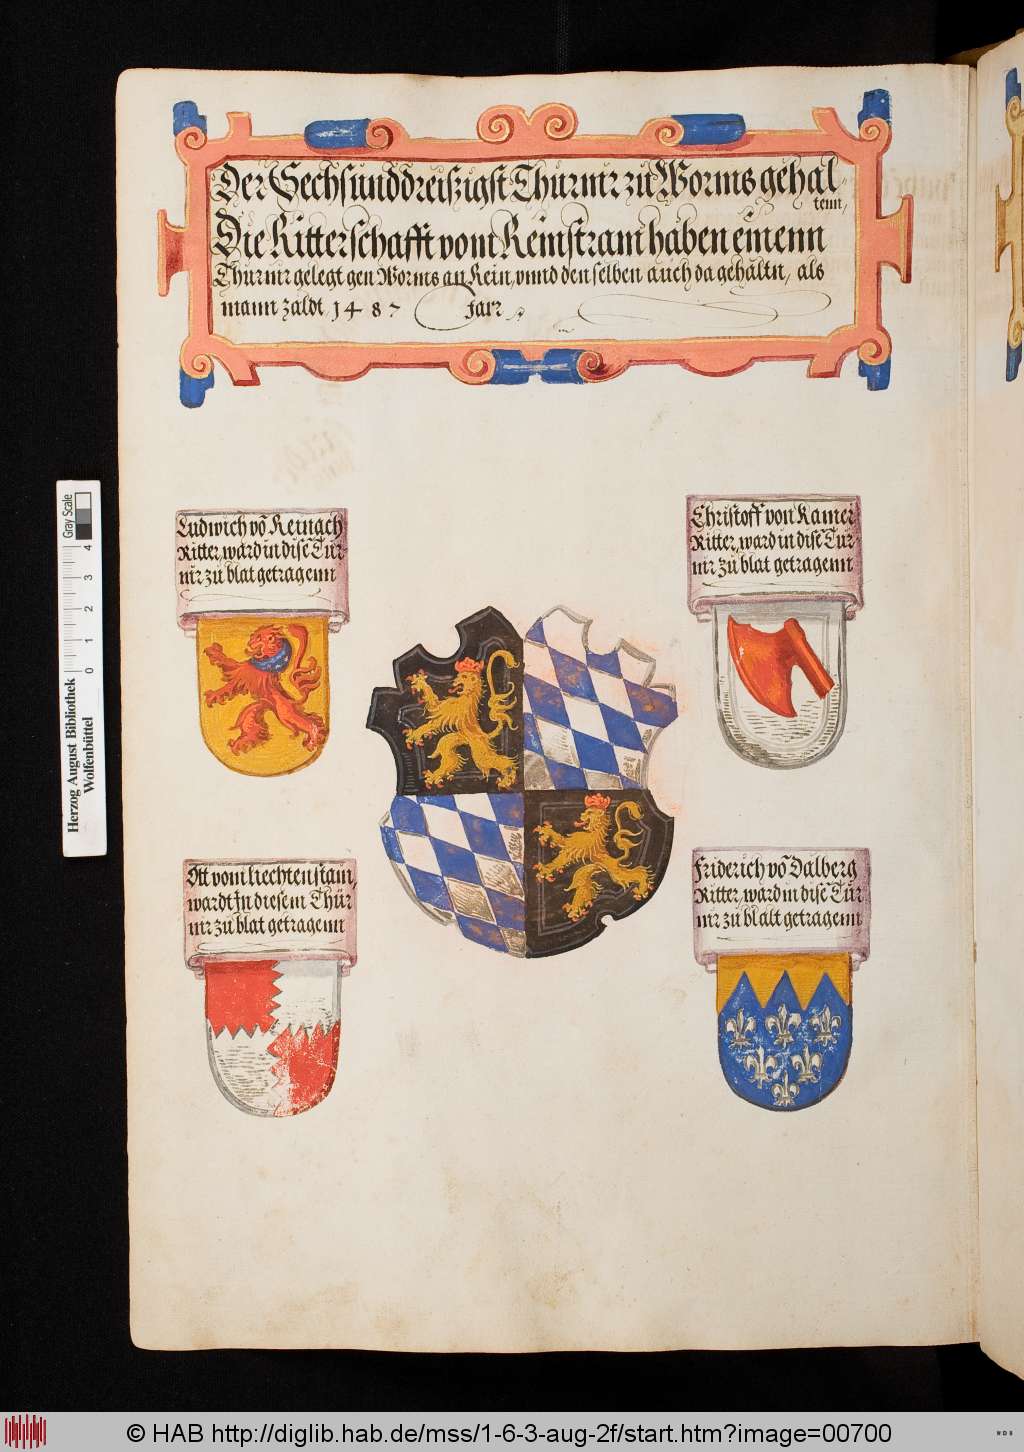 Der Sechsunddreiszigst Thurnir zu Worms gehal-
tenn,
Die Ritterschafft vom Reinstram haben einenn
Thurnir gelegt gen Worms an Rein, vnnd denselben auch da gehaltn, als
mann zaldt 1487 Jarr
Ludwich vō Reinach
Ritter, ward in dise Tur-
nir zu blat getragenn
Christoff von Kamer
Ritter, ward in dise Tur-
nir zu blat getragenn
Ott vom Liechtenstain,
wardt In diesem Thür
nir zu blat getragenn
Friderich vō Dalberg
Ritter, ward in dise Tur-
nir zu blalt getragenn
Gray Scale
0 1 2 3 4
Herzog August Bibliothek
Wolfenbüttel
© HAB http://diglib.hab.de/mss/1-6-3-aug-2f/start.htm?image=00700
WDB